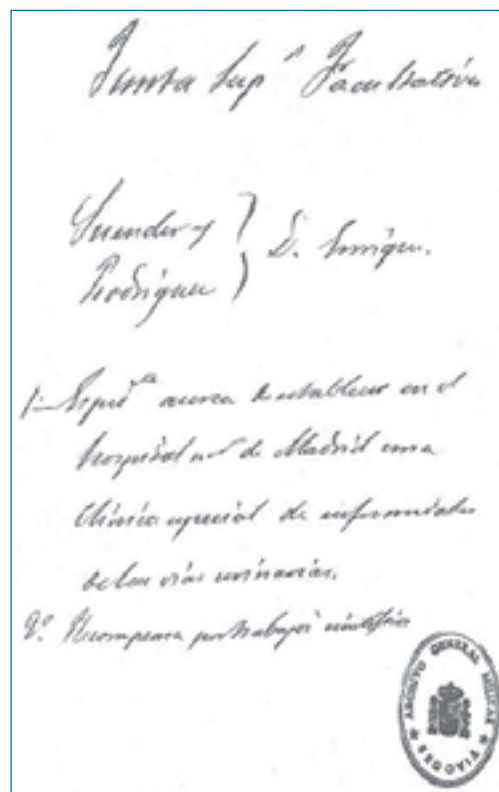 Junta Supʳ Facultativa
Suender y
Rodriguez } D. Enrique.
1º Expedᵗᵉ acerca de establecer en el
hospital mʳ de Madrid una
Clínica especial de enfermedades
de las vías urinarias.
2º Recompensa por trabajos científicos
ARCHIVO GENERAL MILITAR
* SEGOVIA *